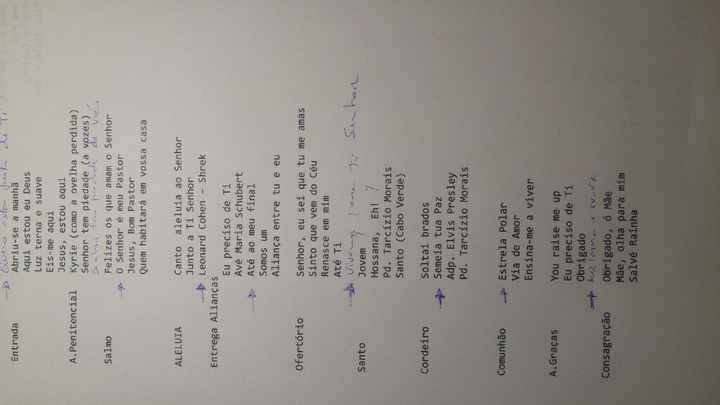 Ti
Entrada Abriu-se a manhã
Aqui estou eu Deus
Luz terna e suave
Eis-me aqui
Jesus, estou aqui
A.Penitencial Kyrie (como a ovelha perdida)
Senhor, tem piedade (a vozes)
Salmo Felizes os que amam o Senhor
O Senhor é meu Pastor
Jesus, Bom Pastor
Quem habitará em vossa casa
ALELUIA Canto aleluia ao Senhor
Junto a Ti Senhor
Leonard Cohen - Shrek
Entrega Alianças
Eu preciso de Ti
Avé Maria Schubert
Até ao meu final
Somos um
Aliança entre tu e eu
Ofertório Senhor, eu sei que tu me amas
Sinto que vem do Céu
Renasce em mim
Até Ti
Senhor
Santo Jovem
Hossana, Eh! ?
Pd. Tarcízio Morais
Santo (Cabo Verde)
Cordeiro Soltai brados
Semeia tua Paz
Adp. Elvis Presley
Pd. Tarcízio Morais
Comunhão Estrela Polar
Via de Amor
Ensina-me a viver
A.Graças You raise me up
Eu preciso de Ti
Obrigado
Consagração Obrigado, ó Mãe
Mãe, olha para mim
Salvé Rainha